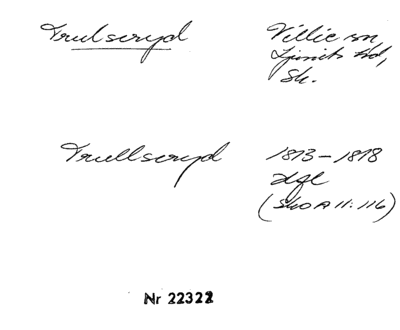 Trulseryd
Villie sn,
Ljunits hd,
Sk.
Trullseryd
1813-1818
dfl
(SkOA 11:116)
Nr 22322